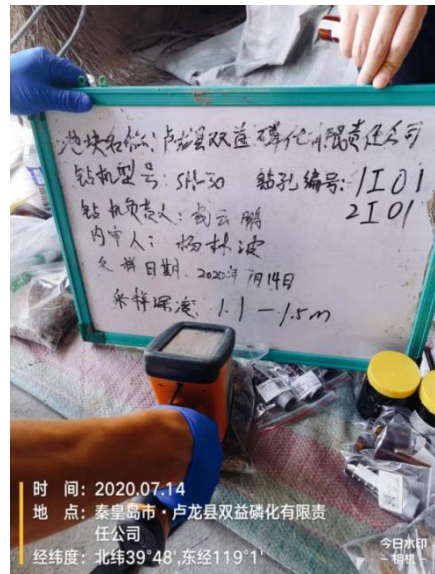 地块名称:卢龙县双益磷化有限责任公司
钻机型号:SH-30 钻孔编号:1I01
2I01
钻机负责人:云鹏
内审人:杨林波
采样日期:2020年7月14日
采样深度:1.1—1.5m
时 间:2020.07.14
地 点:秦皇岛市·卢龙县双益磷化有限责
任公司
经纬度:北纬39°48',东经119°1'
今日水印
-相机-